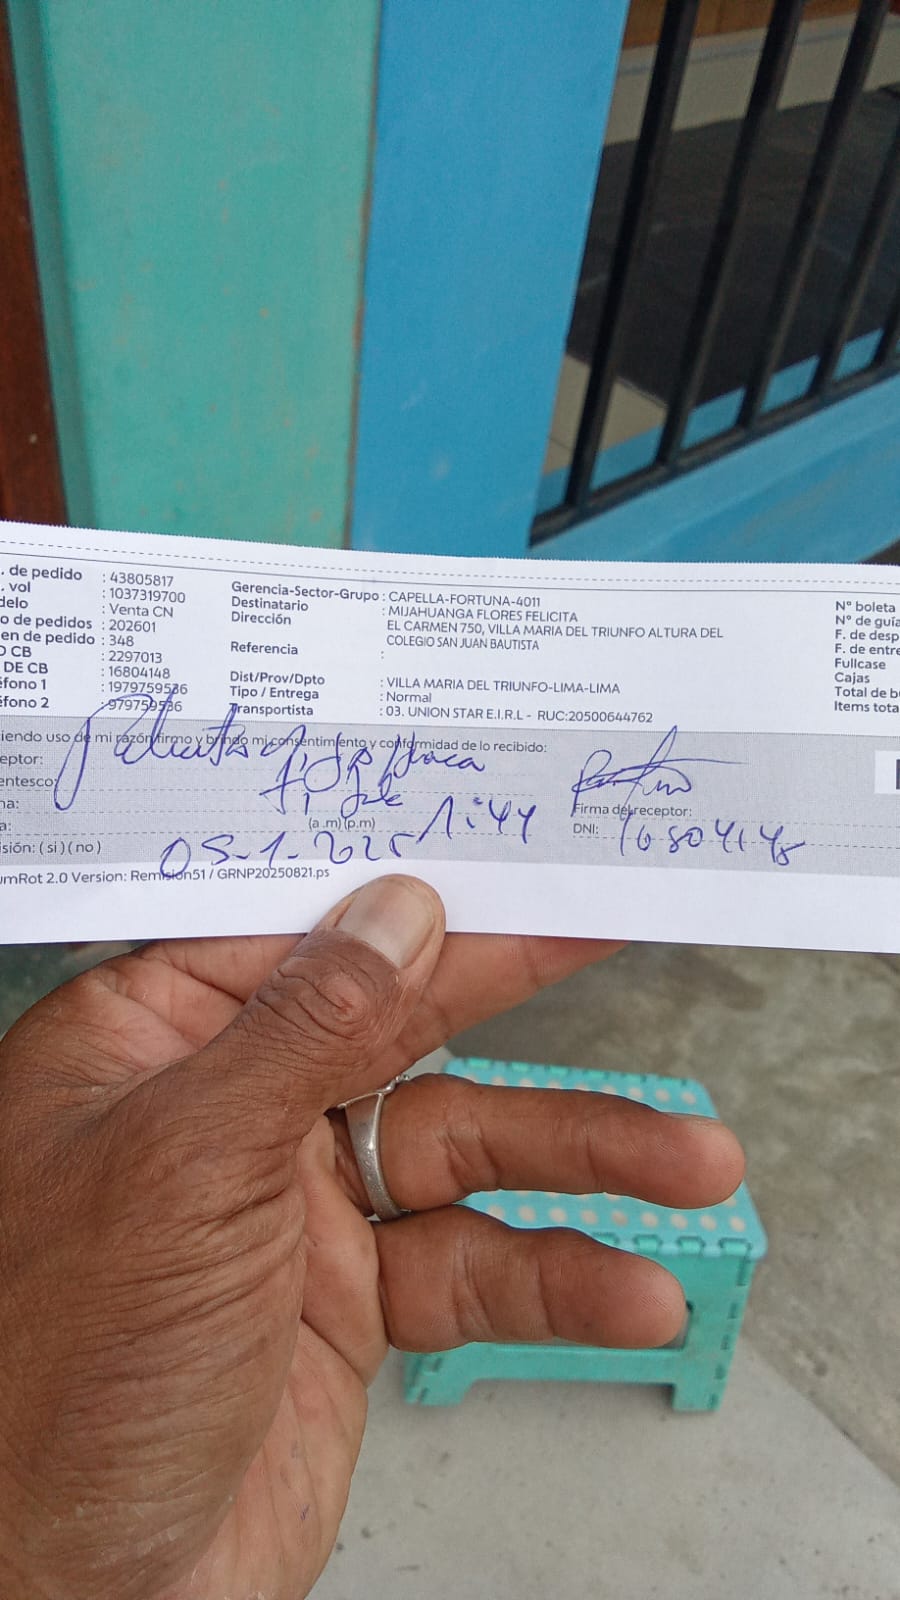 . de pedido : 43805817
. vol : 1037319700
delo : Venta CN
o de pedidos : 202601
en de pedido : 348
O CB : 2297013
DE CB : 16804148
éfono 1 : 1979759536
éfono 2 : 979759536
Gerencia-Sector-Grupo : CAPELLA-FORTUNA-4011
Destinatario : MIJAHUANGA FLORES FELICITA
Dirección EL CARMEN 750, VILLA MARIA DEL TRIUNFO ALTURA DEL
COLEGIO SAN JUAN BAUTISTA
Referencia :
Dist/Prov/Dpto : VILLA MARIA DEL TRIUNFO-LIMA-LIMA
Tipo / Entrega : Normal
Transportista : 03. UNION STAR E.I.R.L - RUC:20500644762
N° boleta
N° de guía
F. de desp
F. de entre
Fullcase
Cajas
Total de b
Items tota
iendo uso de mi razón firmo y brindo mi consentimiento y conformidad de lo recibido:
eptor:
entesco:
ha:
a: (a.m) (p.m) 1:44
isión: ( si ) ( no ) 05-1-2025
Firma del receptor:
DNI: 16804148
umRot 2.0 Version: Remision51 / GRNP20250821.ps